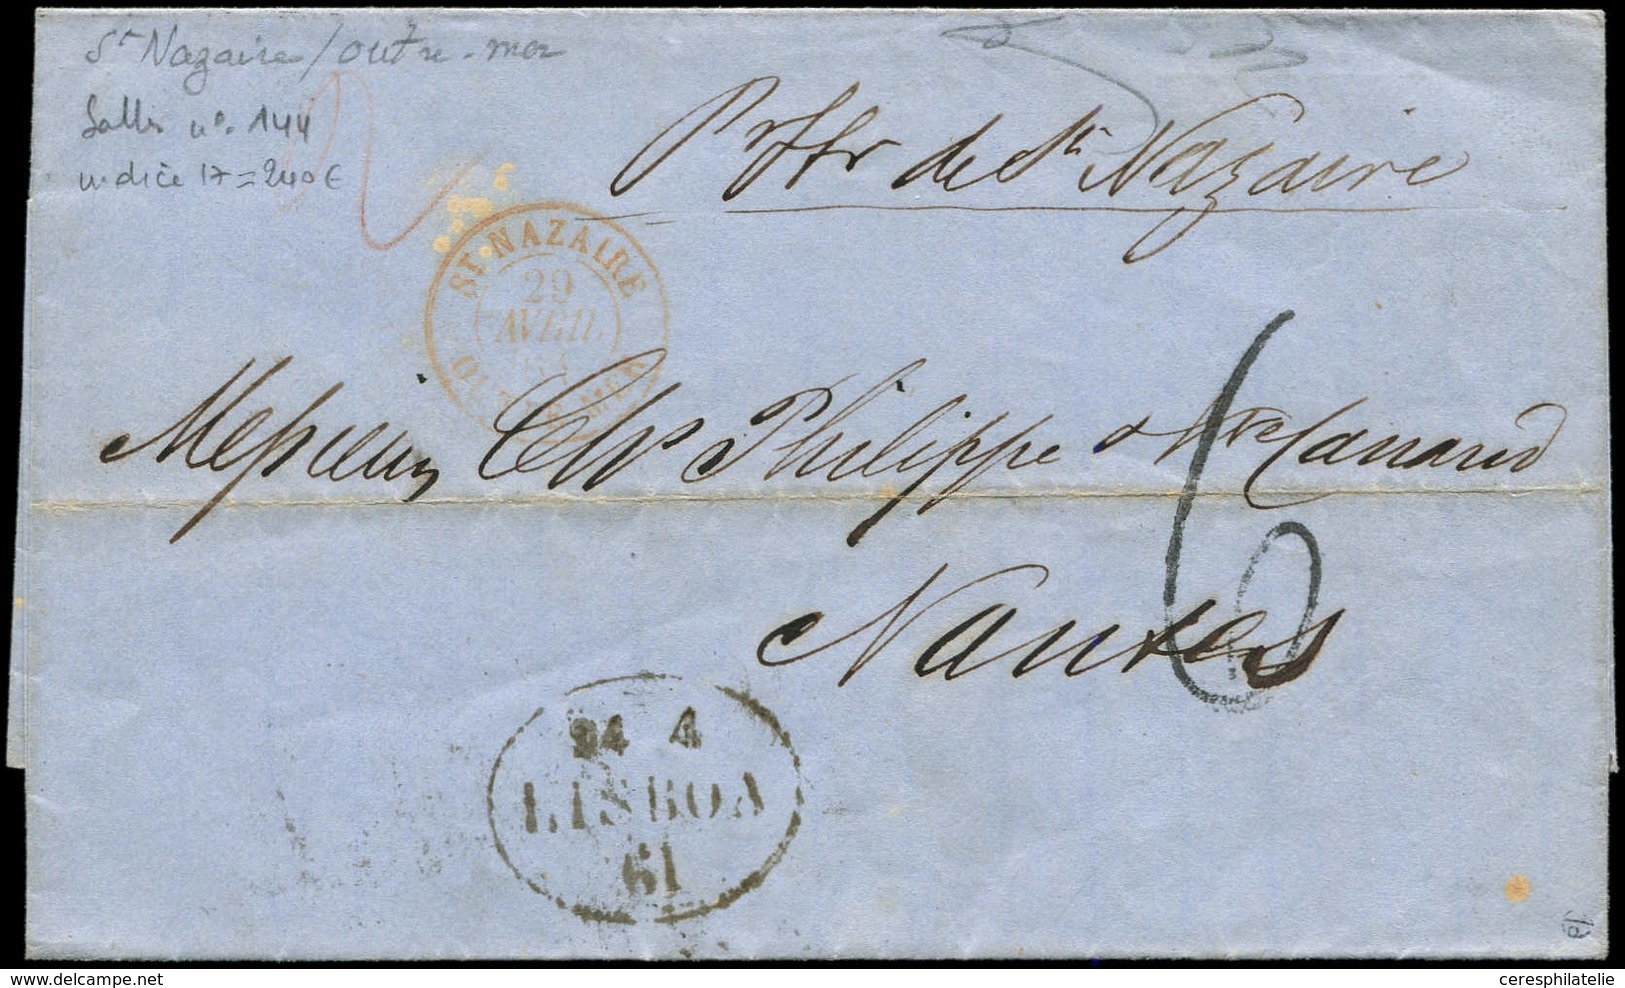 St Nazaire / outre-mer
Salles n°. 144
indice 17 = 240 €
Pr Str de St Nazaire
ST NAZAIRE
29
AVRIL
61
OUTRE-MER
Messieurs Chs Philippe & Canaud
Nantes
6
24 4
LISBOA
61
delcampe.net
ceresphilatelie